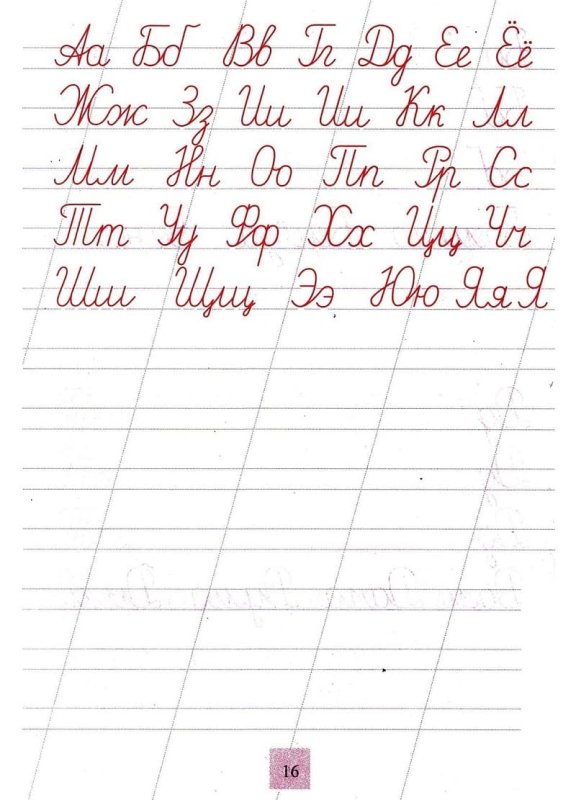 Аа Бб Вв Гг Дд Ее Ёё
Жж Зз Ии Ии Кк Лл
Мм Нн Оо Пп Рр Сс
Тт Уу Фф Хх Цц Чч
Шш Щщ Ээ Юю Яя Я
16